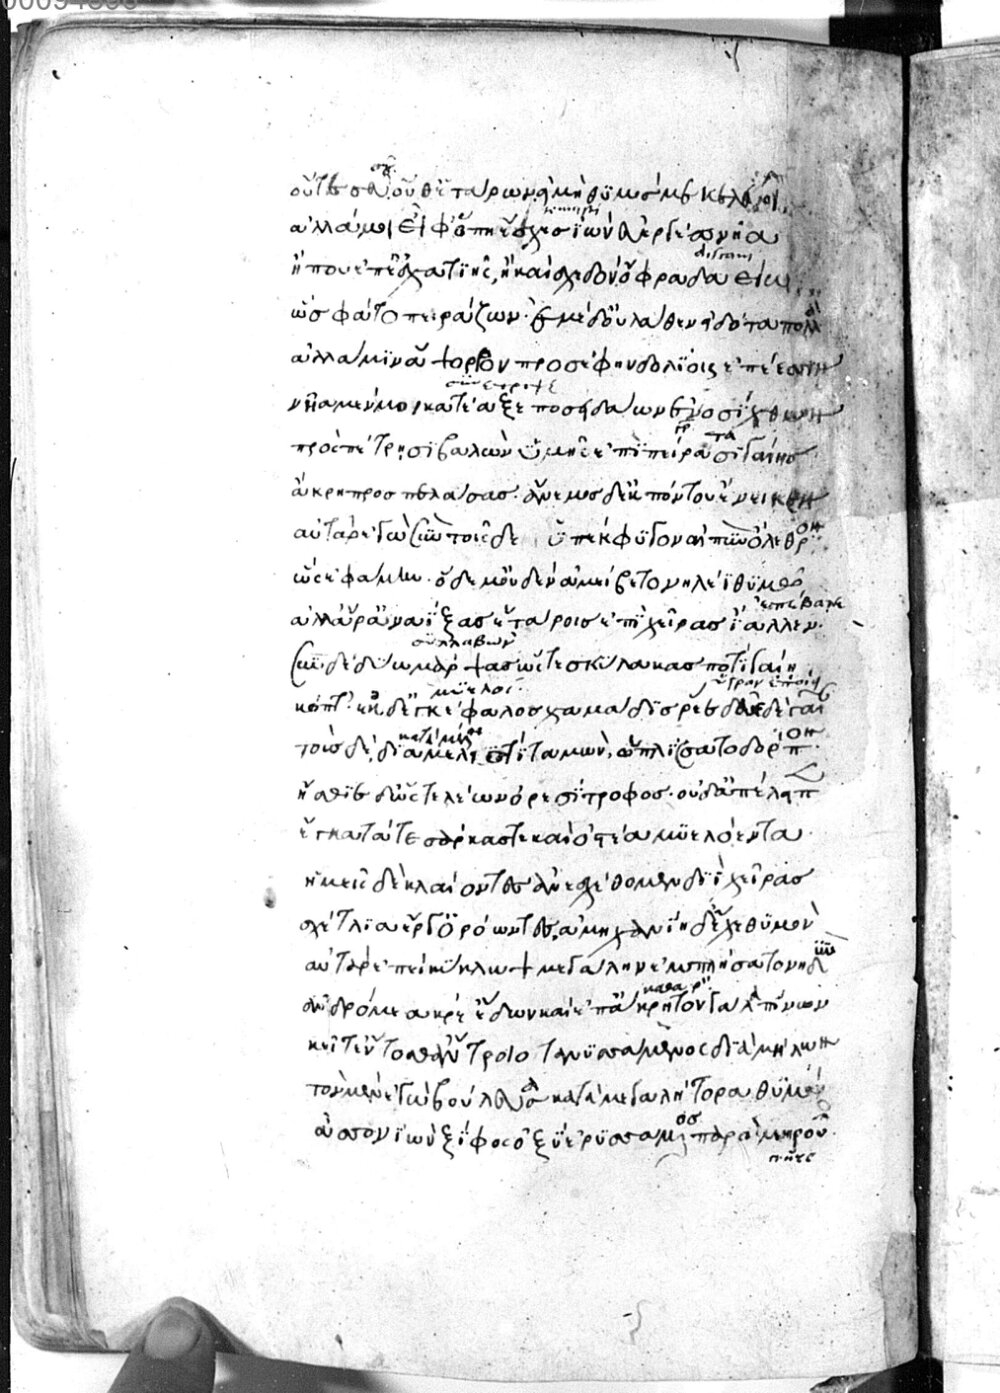 οὔτε σεῦ οὔθ' ἑτάρων εἰ μὴ θυμός με κελεύοι
ἀλλά μοι εἴφ' ὅπῃ ἔσχες ἰὼν εὐεργέα νῆα
ἤ που ἐπ' ἐσχατιῆς, ἢ καὶ σχεδὸν ὄφρα δαείω
ὣς φάτο πειράζων· ἐμὲ δ' οὐ λάθεν εἰδότα πολλά
ἀλλά μιν ἄψορρον προσέφην δολίοις ἐπέεσσιν
νῆα μέν μοι κατέαξε ποσειδάων ἐνοσίχθων
πρὸς πέτρῃσι βαλὼν ὑμῆς ἐπὶ πείρασι γαίης
ἄκρῃ προσπελάσας· ἄνεμος δ' ἐκ πόντου ἔνεικεν
αὐτὰρ ἐγὼ σὺν τοῖσδε ὑπέκφυγον αἰπὺν ὄλεθρον
ὣς ἐφάμην· ὁ δέ μ' οὐδὲν ἀμείβετο νηλέϊ θυμῷ
ἀλλ' ὅ γ' ἀναΐξας ἑτάροις ἐπὶ χεῖρας ἴαλλεν·
σὺν δὲ δύω μάρψας ὥστε σκύλακας ποτὶ γαίῃ
κόπτ'· ἐκ δ' ἐγκέφαλος χαμάδις ῥέε δεῦε δὲ γαῖαν
τοὺς δὲ διαμελεϊστὶ ταμὼν, ὡπλίσσατο δόρπον·
ἤσθιε δ' ὥς τε λέων ὀρεσίτροφος· οὐδ' ἀπέλειπεν
ἔγκατά τε σάρκας τε καὶ ὀστέα μυελόεντα·
ἡμεῖς δὲ κλαίοντες ἀνεσχέθομεν διῒ χεῖρας
σχέτλια ἔργ' ὁρόωντες, ἀμηχανίη δ' ἔχε θυμόν
αὐτὰρ ἐπεὶ κύκλωψ μεγάλην ἐμπλήσατο νηδύν
ἀνδρόμεα κρέ' ἔδων καὶ ἐπ' ἄκρητον γάλα πίνων
κεῖτ' ἔντοσθ' ἄντροιο τανυσσάμενος διὰ μήλων
τὸν μὲν ἐγὼ βούλευσα κατὰ μεγαλήτορα θυμόν
ἆσσον ἰὼν ξίφος ὀξὺ ἐρυσσάμενος παρὰ μηροῦ·